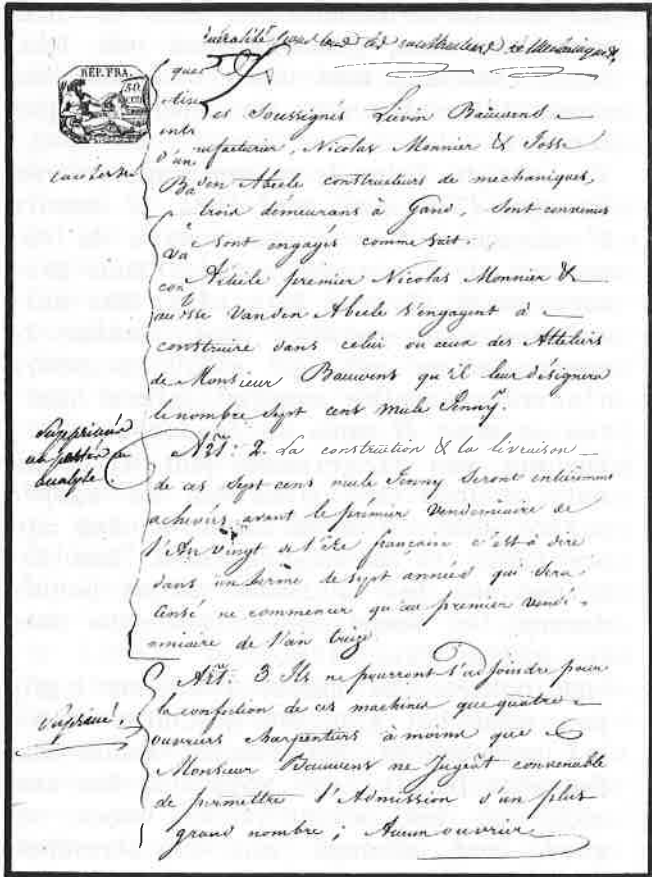 pour
REP. FRA.
que
Les Soussignés Lievin Bauwens
nufacturier, Nicolas Monnier & Josse
Van den Abeele constructeurs de mechaniques,
trois demeurans à Gand, sont convenus
& sont engagés comme suit.
Article premier Nicolas Monnier &
Josse Vanden Abeele s'engagent à
construire dans celui ou ceux des Atteliers
de Monsieur Bauwens qu'il leur désignera
le nombre sept cens mule Jenny.
Art: 2. La construction & la livraison
de ces sept cens mule Jenny seront entierement
achevées avant le premier Vendemiaire de
l'An vingt de l'Ere française c'est à dire
dans un terme de sept années qui sera
censé ne commencer qu'au premier Vendé-
miaire de l'an treize.
Supprimé
Art: 3. Ils ne pourront s'adjoindre pour
la confection de ces machines que quatre
ouvriers charpentiers à moins que
Monsieur Bauwens ne jugeât convenable
de permettre l'Admission d'un plus
grand nombre; Aucun ouvrier